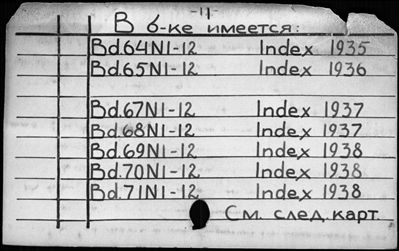 -11-
В б-ке имеется:
Bd.64N1-12 Index 1935
Bd.65N1-12 Index 1936
Bd.67N1-12 Index 1937
Bd.68N1-12 Index 1937
Bd.69N1-12 Index 1938
Bd.70N1-12 Index 1938
Bd.71N1-12 Index 1938
См. след. карт.